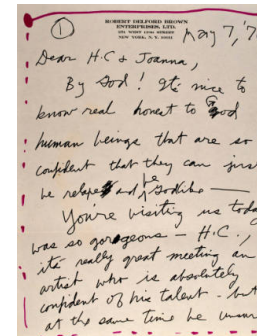 ROBERT DELFORD BROWN
ENTERPRISES, LTD.
251 WEST 13TH STREET
NEW YORK, N. Y. 10011
1 May 7, '7
Dear H.C & Joanna,
By God! It's nice to
know real honest to God
human beings that are so
confident that they can just
be relaxed and be Godlike —
You're visiting us today
was so gorgeous — H.C.,
it's really great meeting an
artist who is absolutely
confident of his talent - but
at the same time he